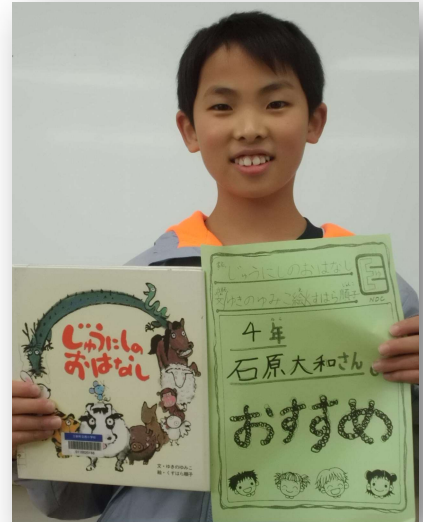 じゅうにしの
おはなし
文・ゆきのゆみこ
絵・くすはら順子
じゅうにしのおはなし
ゆきのゆみこ
E
4年
石原大和さん
おすすめ